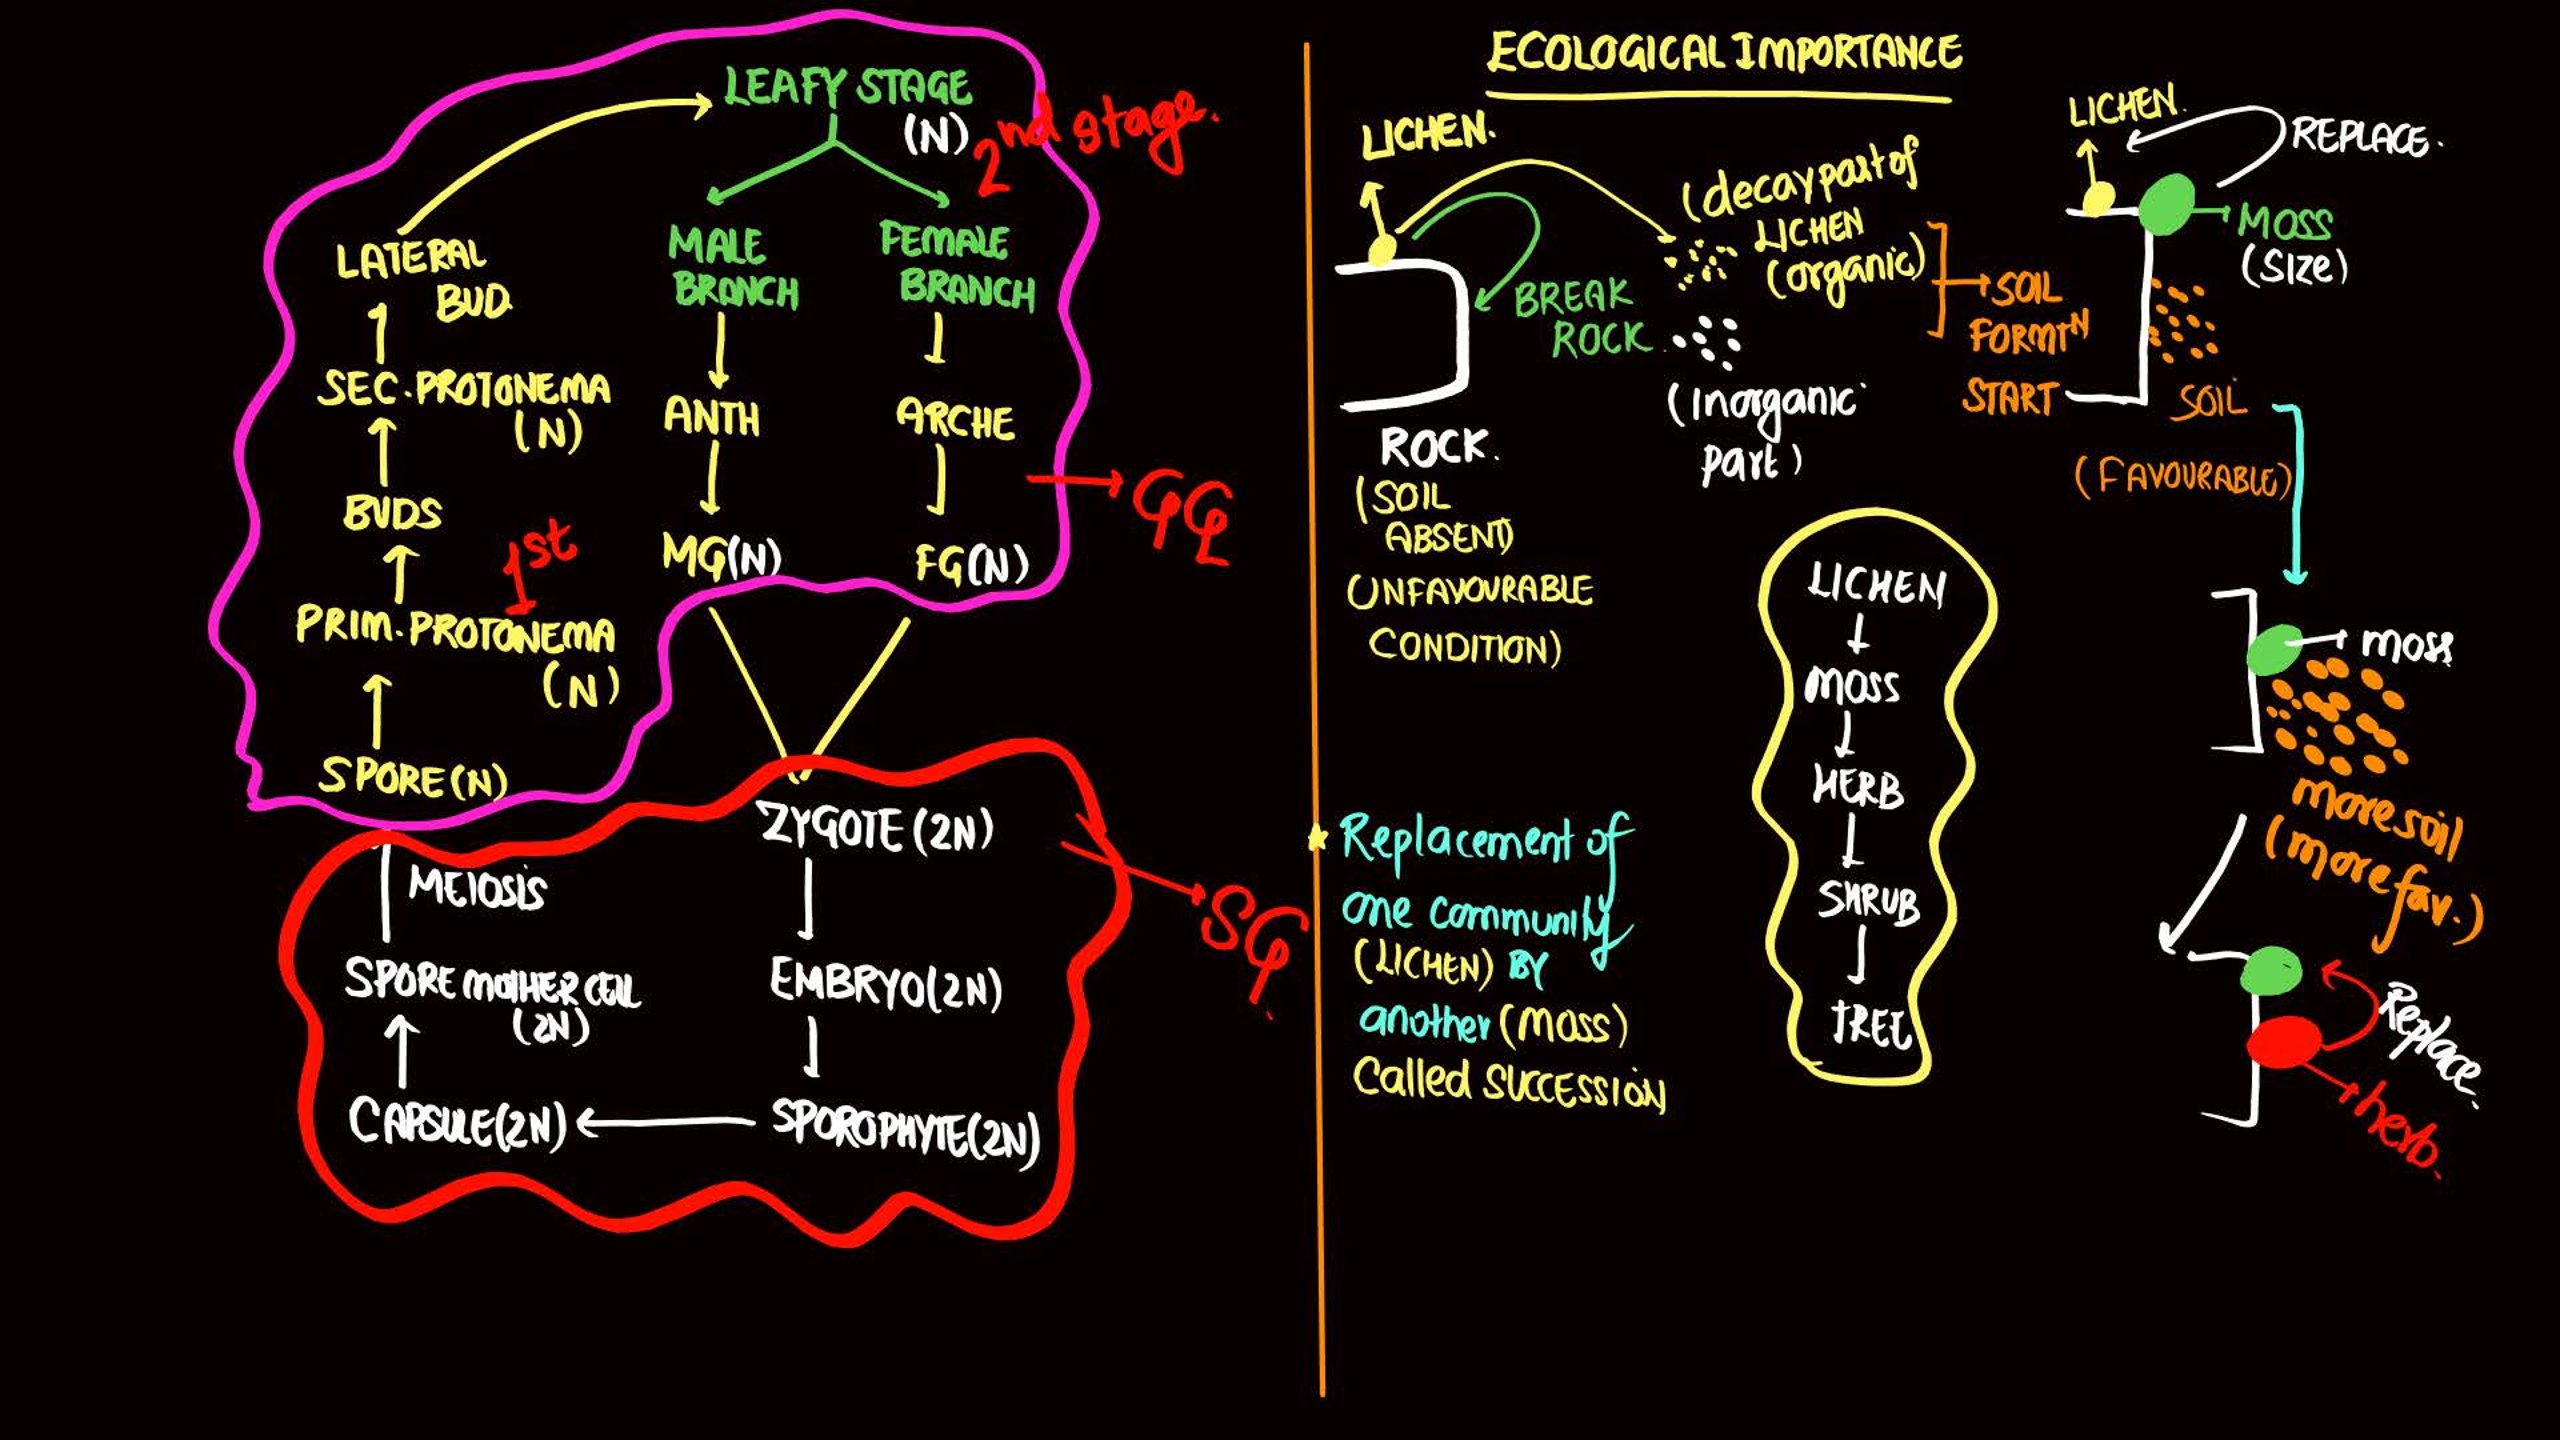 LEAFY STAGE
(N)
2nd stage.
MALE
BRANCH
FEMALE
BRANCH
LATERAL
BUD
SEC. PROTONEMA
(N)
ANTH
ARCHE
BUDS
1st
MG(N)
FG(N)
PRIM. PROTONEMA
(N)
SPORE(N)
ZYGOTE (2N)
MEIOSIS
SPORE MOTHER CELL
(2N)
EMBRYO(2N)
CAPSULE(2N)
SPOROPHYTE(2N)
ECOLOGICAL IMPORTANCE
LICHEN.
(decay part of
LICHEN
(organic)
BREAK
ROCK
(Inorganic
part)
SOIL
FORMTN
START
ROCK.
(SOIL
ABSENT)
UNFAVOURABLE
CONDITION)
LICHEN.
REPLACE.
MOSS
(SIZE)
SOIL
(FAVOURABLE)
moss
more soil
(more fav.)
Replace.
herb.
LICHEN
MOSS
HERB
SHRUB
TREE
Replacement of
one community
(LICHEN) BY
another (MOSS)
Called SUCCESSION